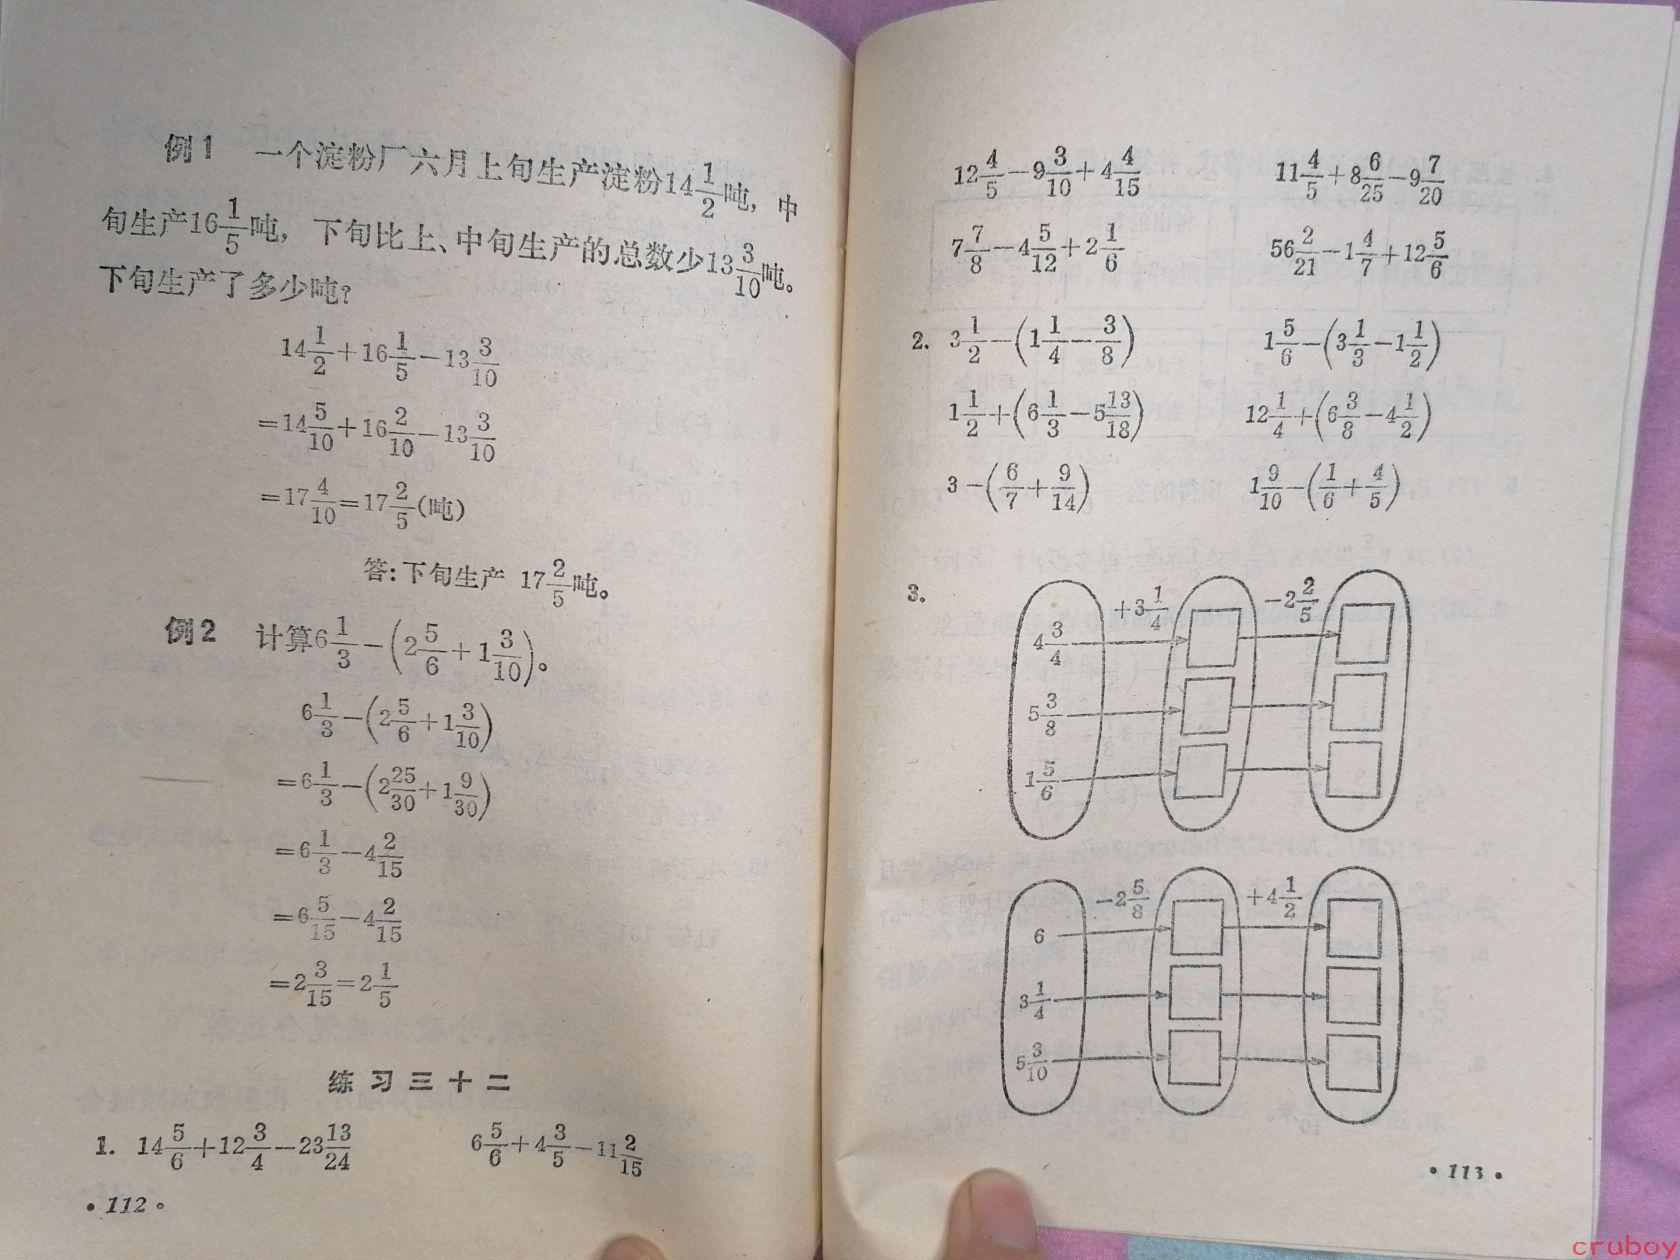 例1 一个淀粉厂六月上旬生产淀粉14 1/2吨, 中
旬生产16 1/5吨, 下旬比上、中旬生产的总数少13 3/10吨。
下旬生产了多少吨?
14 1/2+16 1/5-13 3/10
=14 5/10+16 2/10-13 3/10
=17 4/10=17 2/5(吨)
答:下旬生产 17 2/5吨。
例2 计算6 1/3-(2 5/6+1 3/10)。
6 1/3-(2 5/6+1 3/10)
=6 1/3-(2 25/30+1 9/30)
=6 1/3-4 2/15
=6 5/15-4 2/15
=2 3/15=2 1/5
练习三十二
1. 14 5/6+12 3/4-23 13/24 6 5/6+4 3/5-11 2/15
·112·
12 4/5-9 3/10+4 4/15 11 4/5+8 6/25-9 7/20
7 7/8-4 5/12+2 1/6 56 2/21-1 4/7+12 5/6
2. 3 1/2-(1 1/4-3/8) 1 5/6-(3 1/3-1 1/2)
1 1/2+(6 1/3-5 13/18) 12 1/4+(6 3/8-4 1/2)
3-(6/7+9/14) 1 9/10-(1/6+4/5)
3.
+3 1/4 -2 2/5
4 3/4
5 3/8
1 5/6
-2 5/8 +4 1/2
6
3 1/4
5 3/10
·113·
cruboy